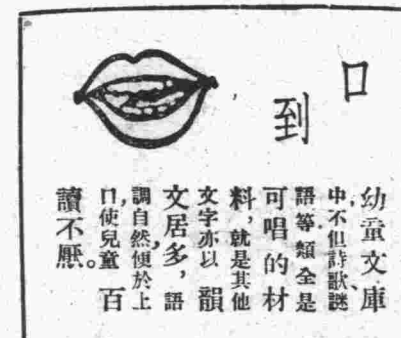 口到
幼童文庫
中不但詩歌、謎
語等類全是
可唱的材
料，就是其他
文字亦以韻
文居多，語
調自然便於上
口，使兒童百
讀不厭。